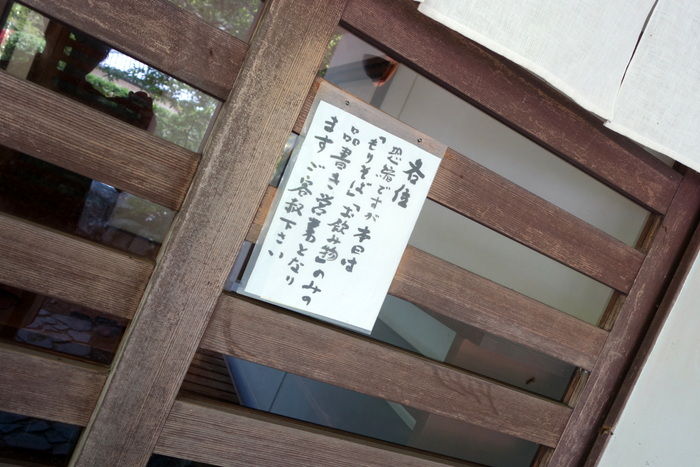 各位
恐縮ですが 本日は
「もりそば」「お飲み物」のみの
品書き営業となり
ます ご容赦下さい